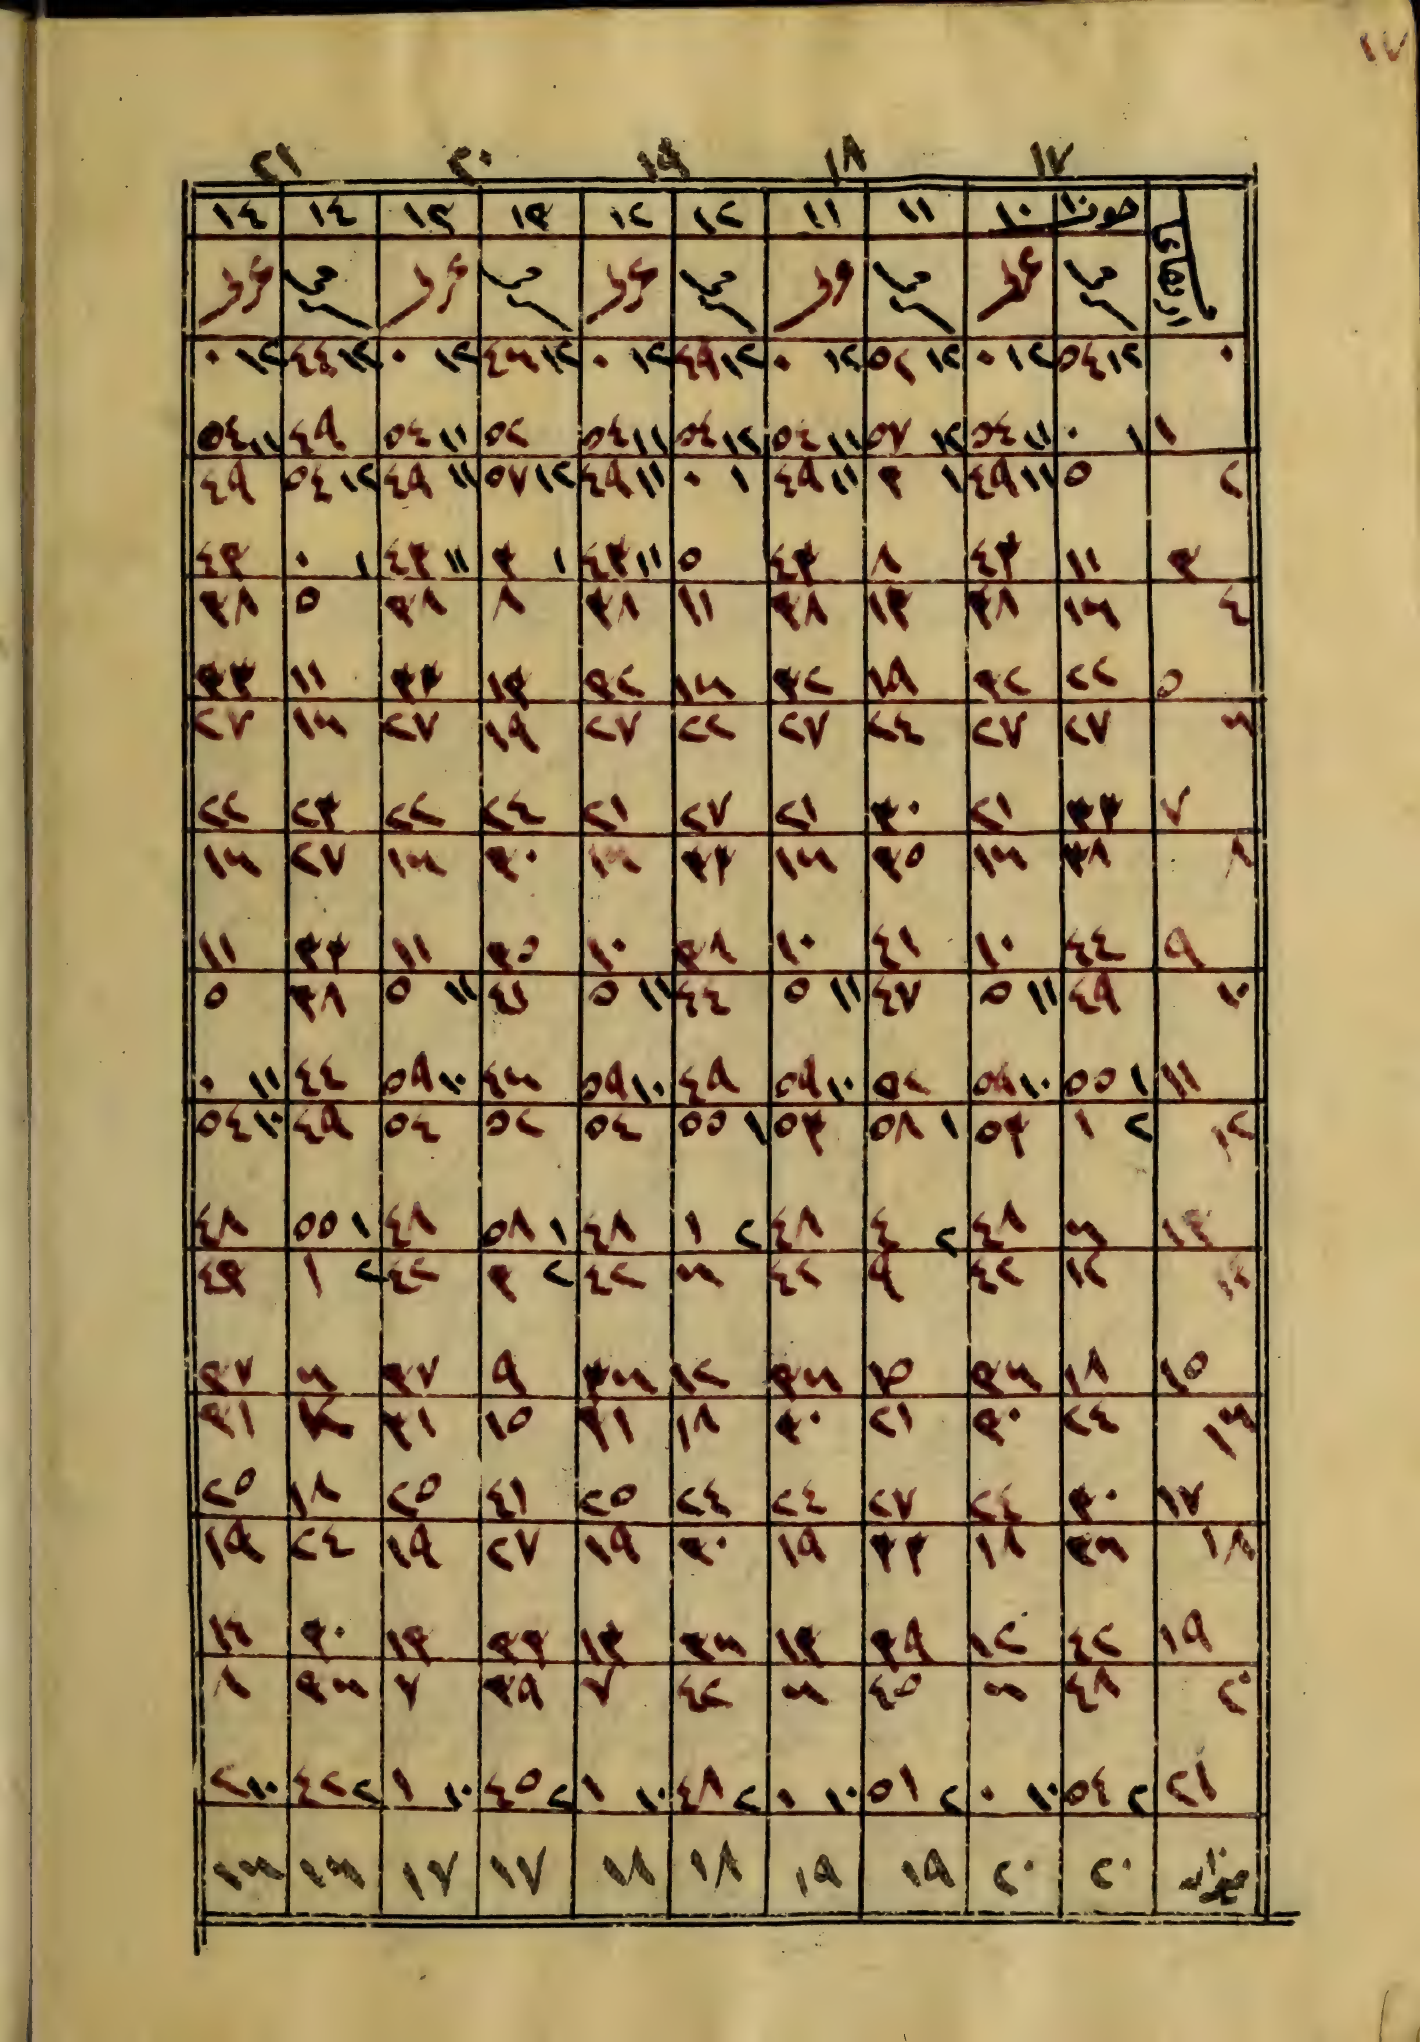 ١٧
١٧ ١٨ ١٩ ٢٠ ٢١
حوت ١٠ ١٠ ١١ ١١ ١٢ ١٢ ١٣ ١٣ ١٤ ١٤
٠ ١٢ ٥٤ ١٢ ٠ ١٢ ٥٢ ١٢ ٠ ١٢ ٤٩ ١٢ ٠ ١٢ ٤٦ ١٢ ٠ ١٢ ٤٤ ١٢ ٠
١ ١ ٠ ١١ ٥٤ ١٢ ٥٧ ١١ ٥٤ ١٢ ٥٤ ١١ ٥٤ ٥٢ ١١ ٥٤ ٤٩ ١١ ٥٤
٢ ٥ ١١ ٤٩ ١ ٣ ١١ ٤٩ ١ ٠ ١١ ٤٩ ١٢ ٥٧ ١١ ٤٩ ١٢ ٥٤ ٤٩
٣ ١١ ٤٣ ٨ ٤٣ ٥ ١١ ٤٣ ١ ٣ ١١ ٤٣ ١ ٠ ٤٣
٤ ١٦ ٣٨ ١٣ ٣٨ ١١ ٣٨ ٨ ٣٨ ٥ ٣٨
٥ ٢٢ ٣٢ ١٩ ٣٢ ١٦ ٣٢ ١٣ ٣٣ ١١ ٣٣
٦ ٢٧ ٢٧ ٢٤ ٢٧ ٢٢ ٢٧ ١٩ ٢٧ ١٦ ٢٧
٧ ٣٣ ٢١ ٣٠ ٢١ ٢٧ ٢١ ٢٤ ٢٢ ٢٣ ٢٢
٨ ٣٨ ١٦ ٣٥ ١٦ ٣٣ ١٦ ٣٠ ١٦ ٢٧ ١٦
٩ ٤٤ ١٠ ٤١ ١٠ ٣٨ ١٠ ٣٥ ١١ ٣٣ ١١
١٠ ٤٩ ١١ ٥ ٤٧ ١١ ٥ ٤٤ ١١ ٥ ٤١ ١١ ٥ ٣٨ ٥
١١ ١ ٥٥ ١٠ ٥٩ ٥٢ ١٠ ٥٩ ٤٩ ١٠ ٥٩ ٤٦ ١٠ ٥٩ ٤٤ ١١ ٠
١٢ ٢ ١ ٥٣ ١ ٥٨ ٥٣ ١ ٥٥ ٥٤ ٥٢ ٥٤ ٤٩ ١٠ ٥٤
١٣ ٦ ٤٨ ٢ ٤ ٤٨ ٢ ١ ٤٨ ١ ٥٨ ٤٨ ١ ٥٥ ٤٨
١٤ ١٢ ٤٢ ٩ ٤٢ ٦ ٤٢ ٢ ٣ ٤٢ ٢ ١ ٤٣
١٥ ١٨ ٣٦ ١٥ ٣٦ ١٢ ٣٦ ٩ ٣٧ ٦ ٣٧
١٦ ٢٤ ٣٠ ٢١ ٣٠ ١٨ ٣١ ١٥ ٣١ ١٢ ٣١
١٧ ٣٠ ٢٤ ٢٧ ٢٤ ٢٤ ٢٥ ٤١ ٢٥ ١٨ ٢٥
١٨ ٣٦ ١٨ ٣٣ ١٩ ٣٠ ١٩ ٢٧ ١٩ ٢٤ ١٩
١٩ ٤٢ ١٢ ٣٩ ١٣ ٣٦ ١٣ ٣٣ ١٣ ٣٠ ١٤
٢٠ ٤٨ ٦ ٤٥ ٦ ٤٢ ٧ ٣٩ ٧ ٣٦ ٨
٢١ ٢ ٥٤ ١٠ ٠ ٢ ٥١ ١٠ ٠ ٢ ٤٨ ١٠ ١ ٢ ٤٥ ١٠ ١ ٢ ٤٢ ١٠ ٢
ميزان ٢٠ ٢٠ ١٩ ١٩ ١٨ ١٨ ١٧ ١٧ ١٦ ١٦